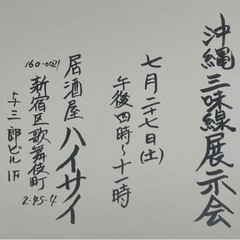 沖縄三味線展示会
七月二十七日(土)
午後四時〜十一時
居酒屋ハイサイ
160-0021
新宿区歌舞伎町
2-45-4
与三郎ビル1F